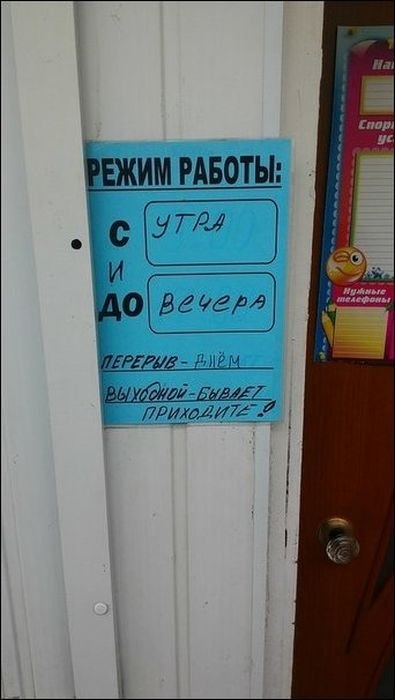 РЕЖИМ РАБОТЫ:
С УТРА
И
ДО ВЕЧЕРА
ПЕРЕРЫВ - ДНЁМ
ВЫХОДНОЙ - БЫВАЕТ
ПРИХОДИТЕ!
На
Спор
ус
Нужные
телефоны